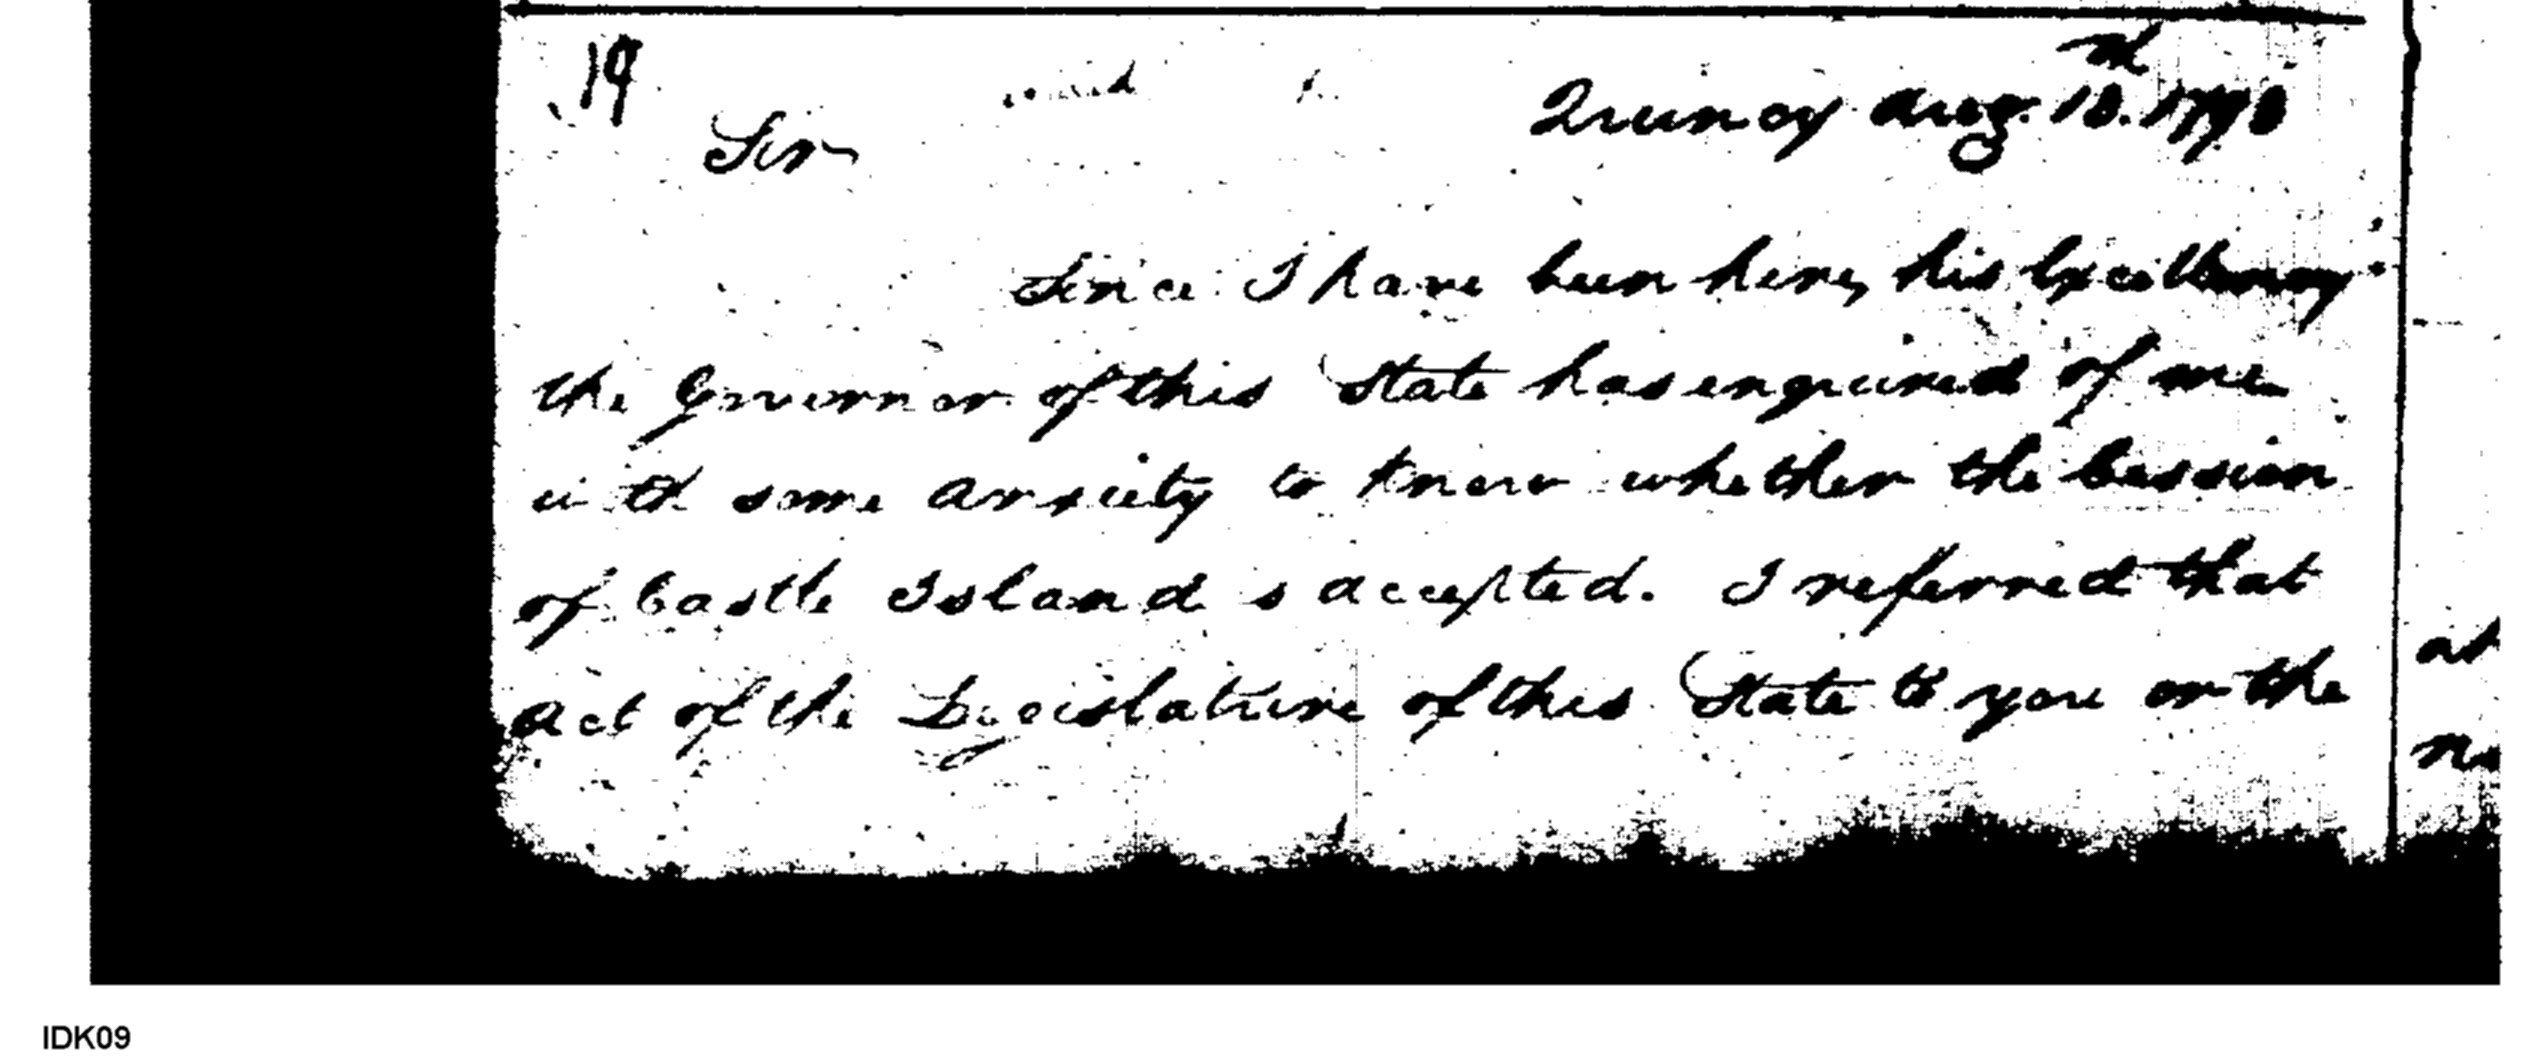 19
Quincy Aug. 18th. 1798
Sir
Since I have been here, his Excellency
the Governor of this State has enquired of me
with some anxiety to know whether the Cession
of Castle Island is accepted. I referred that
act of the Legislature of this State to you on the
IDK09